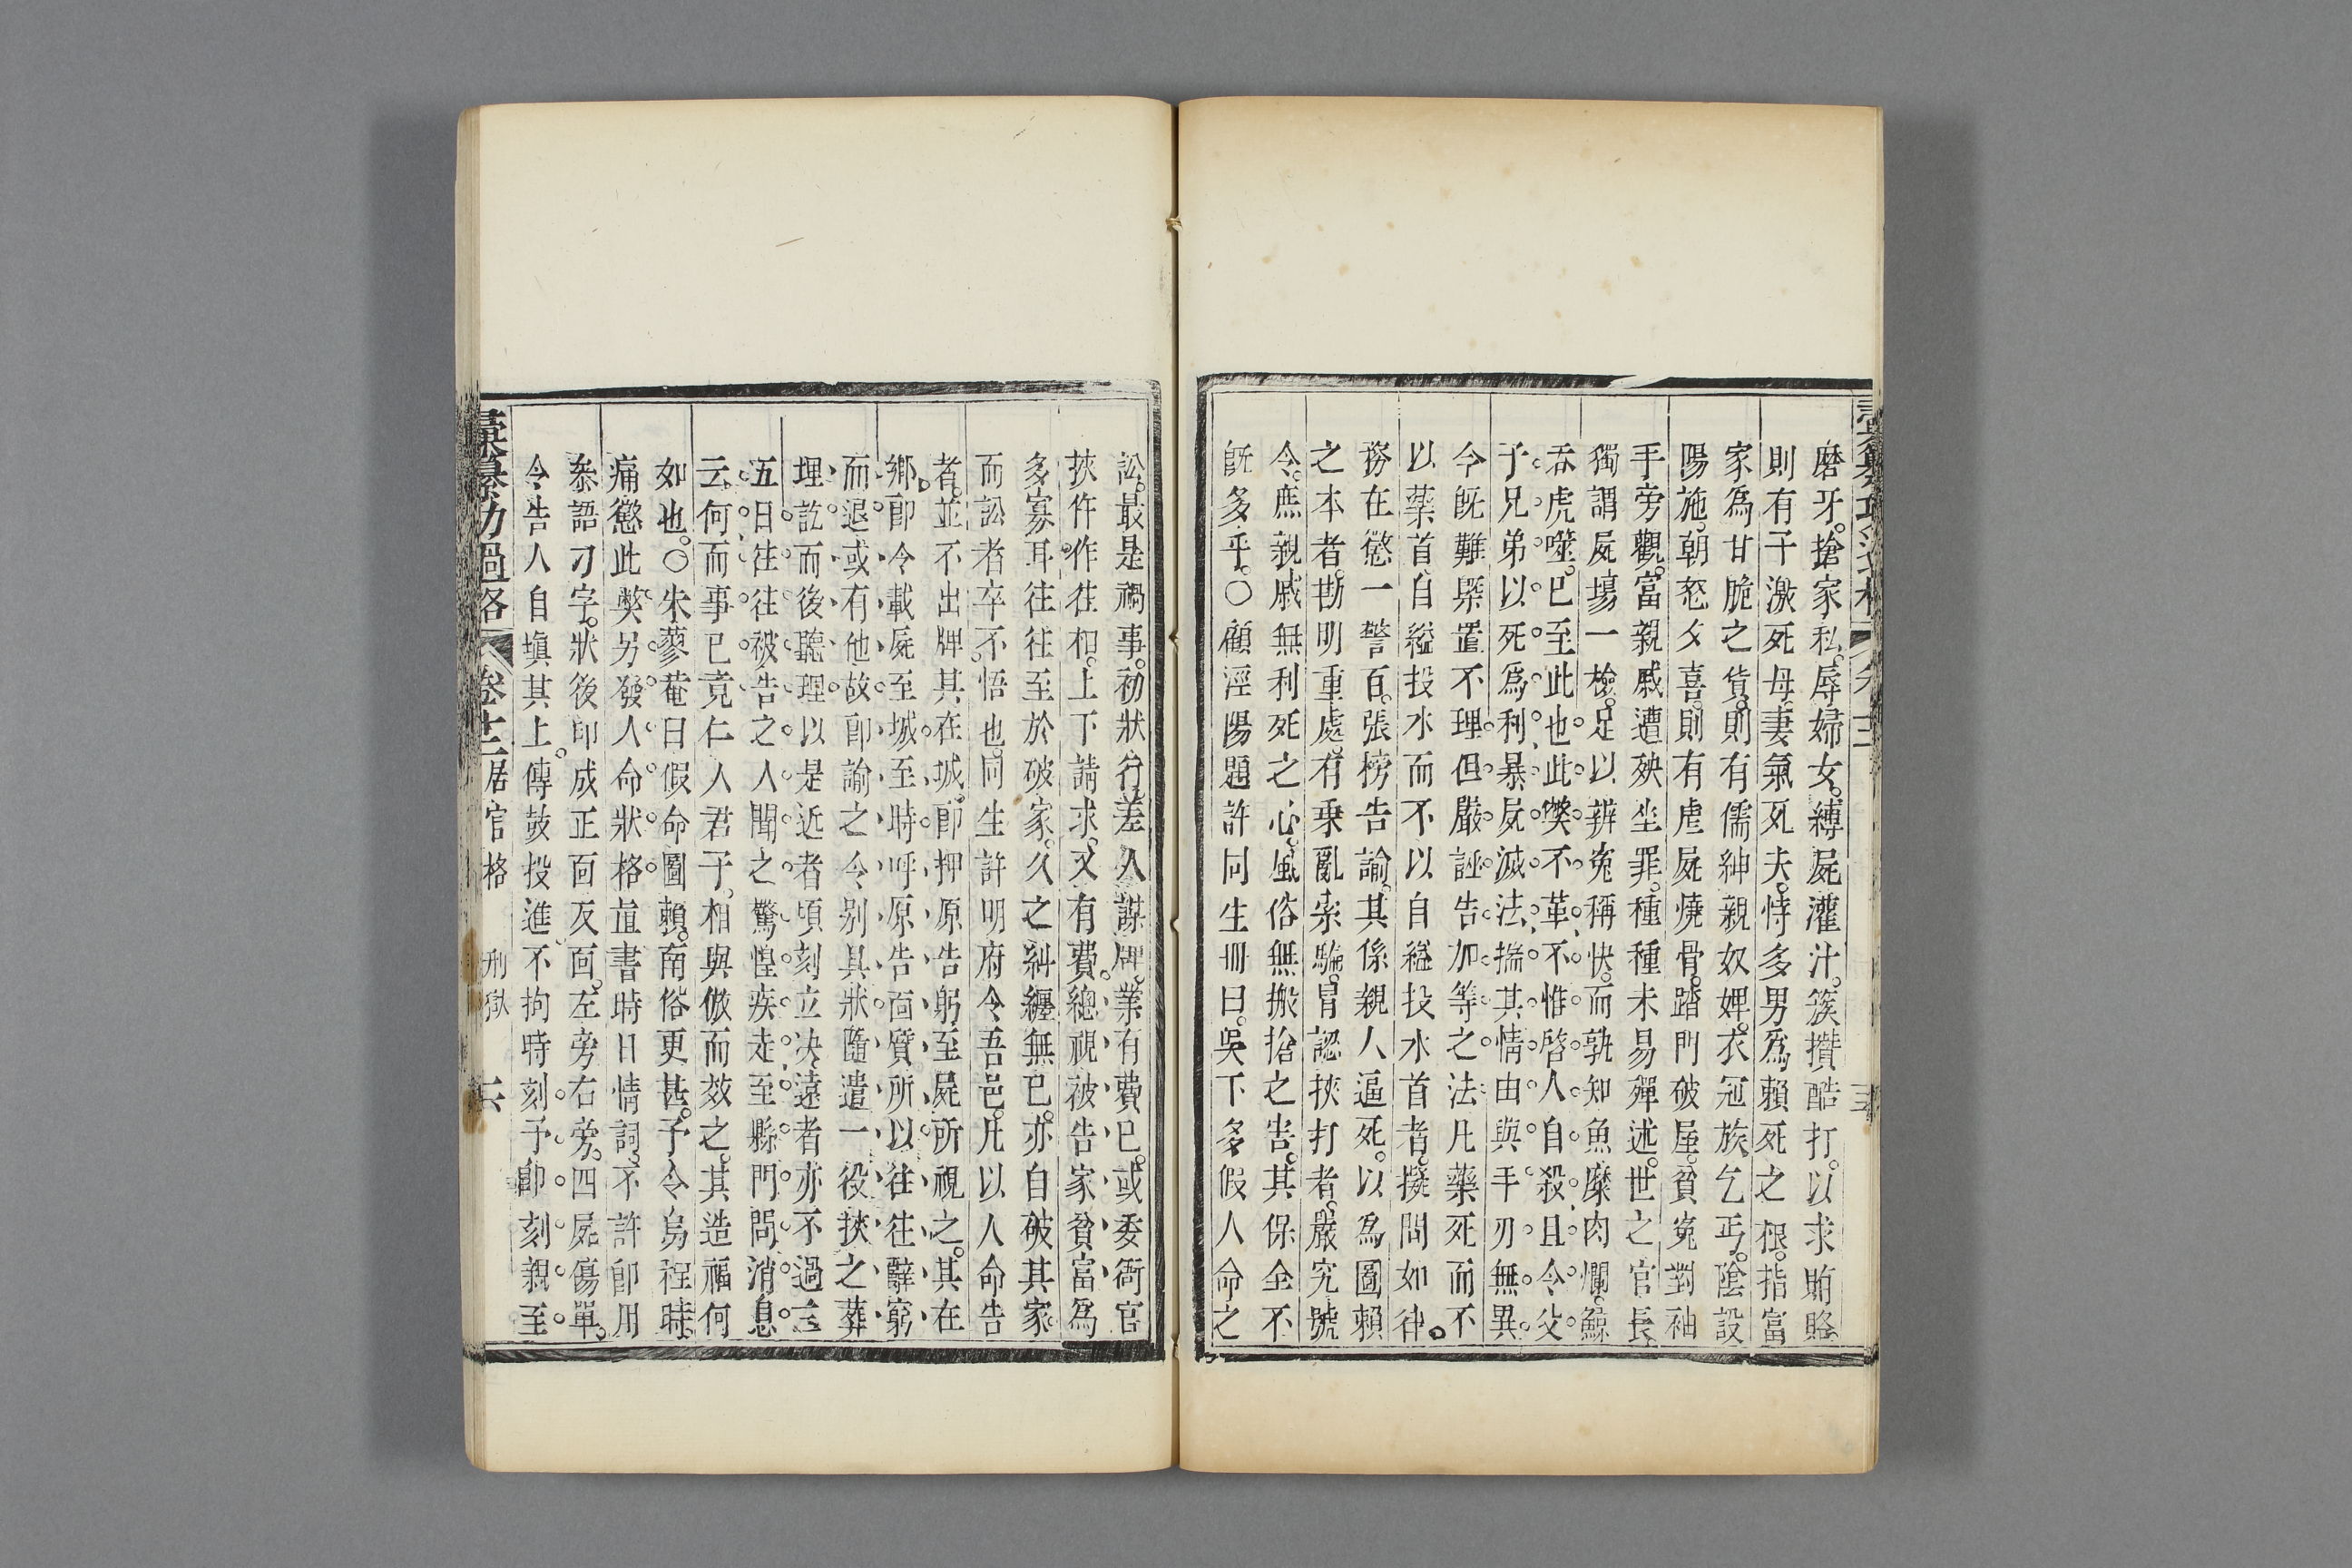 磨牙。搶家私。辱婦女。縛屍灌汁。簇攢酷打。以求賄賂
則有子激死母。妻氣死夫。恃多男爲賴死之根。指富
家爲甘脆之貨。則有儒紳親奴婢。衣冠族乞丐。陰設
陽施。朝怒夕喜。則有虐屍燒骨。踏門破屋。貧寃對袖
手旁觀。富親戚遭殃坐罪。種種未易殫述。世之官長
獨謂屍塲一檢。足以辨寃稱快。而孰知魚糜肉爛。鯨
吞虎噬。巳至此也。此獘不革。不惟啓人自殺。且令父
子兄弟以死爲利。暴屍滅法。揣其情由。與手刃無異。
今旣難槩置不理。但嚴誣告加等之法。凡藥死而不
以藥首自縊投水而不以自縊投水首者。擬問如律。
務在懲一警百。張榜告諭。其係親人逼死。以爲圖賴
之本者。勘明重處。有乗亂索騙。冐認挾打者。嚴究號
令。庶親戚無利死之心。風俗無搬搶之害。其保全不
旣多乎。○顧涇陽題許同生冊曰。吳下多假人命之
訟。最是禍事。初狀行差人謀牌。業有費巳。或委衙官
挾仵作徃相。上下請求。又有費。總視被告家貧富爲
多寡耳往往至於破家。久之糾纒無巳。亦自破其家
而訟者卒不悟也。同生許明府令吾邑。凡以人命告
者。並不出牌其在城。卽押原告躬至屍所視之。其在
鄉。卽令載屍至城至時呼原告面質所以徃徃辭窮
而退。或有他故卽諭之令別具狀隨遣一役挾之葬
埋訖而後聽理以是近者頃刻立决遠者亦不過三
五日徃徃被告之人聞之驚惶疾走至縣門問消息
云何而事巳竟仁人君子。相與倣而效之。其造福何
如也。○朱蓼菴曰假命圖賴。南俗更甚。予令烏程時。
痛懲此獘另發人命狀格宜書時日情詞。不許卽用
叅語刁字。狀後印成正面反面。左旁右旁。四屍傷單。
令告人自塡其上。傳鼓投進不拘時刻予卽刻親至
彚纂功過格 卷十二 居官格 刑獄